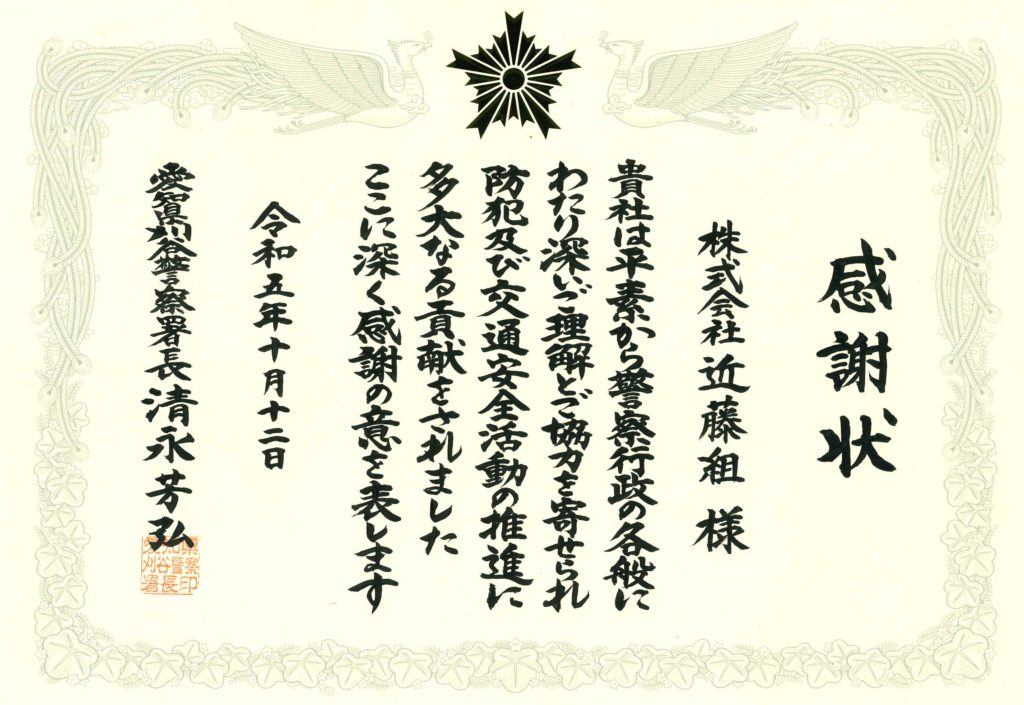 感謝状
株式会社近藤組様
貴社は平素から警察行政の各般に
わたり深いご理解とご協力を寄せられ
防犯及び交通安全活動の推進に
多大なる貢献をされました
ここに深く感謝の意を表します
令和五年十月十二日
愛知県刈谷警察署長清永芳弘
愛知県
刈谷警察
署長印